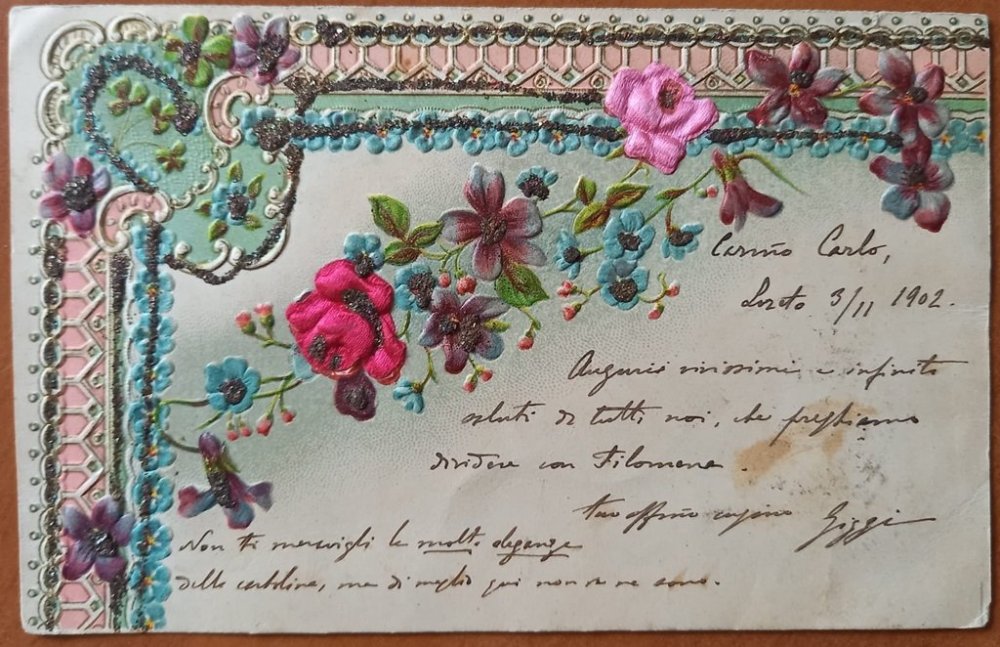 Carmo Carlo,
Loreto 3/11 1902.
Auguri vivissimi e infiniti
saluti di tutti noi, che preghiamo
dividere con Filomena.
tuo affmo cugino Giggi
Non ti meravigli la molta eleganza
della cartolina, ma di meglio qui non ve ne sono.